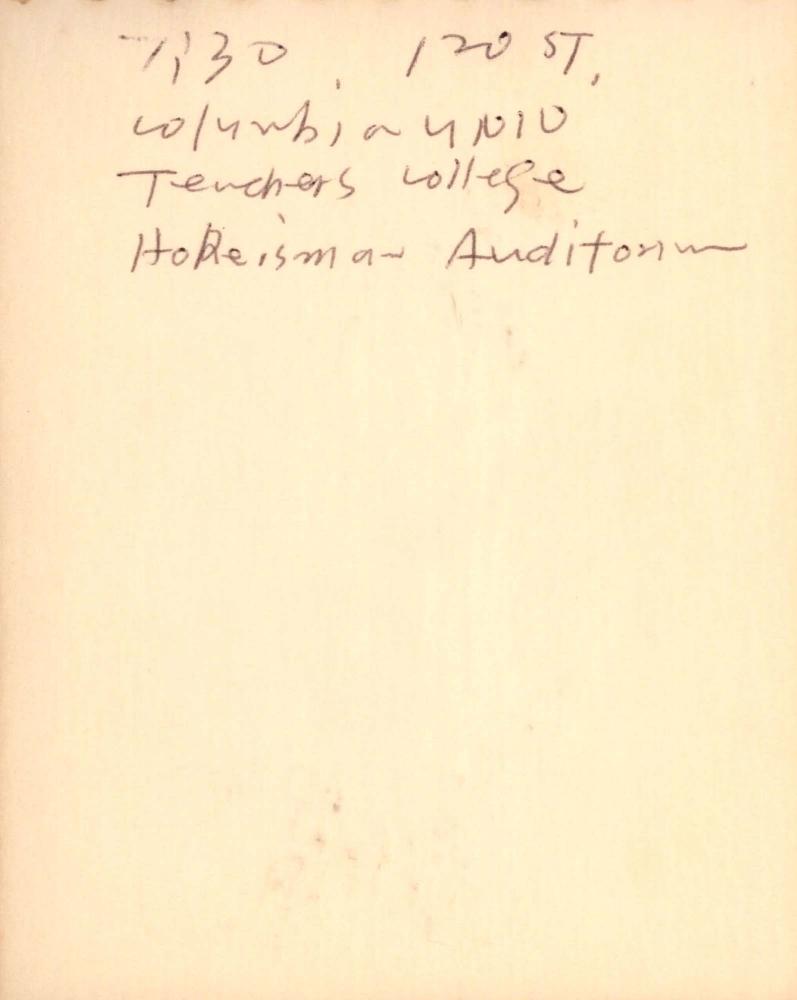 7:30, 120 ST,
Columbia UNIV
Teachers College
HoReisman Auditorium